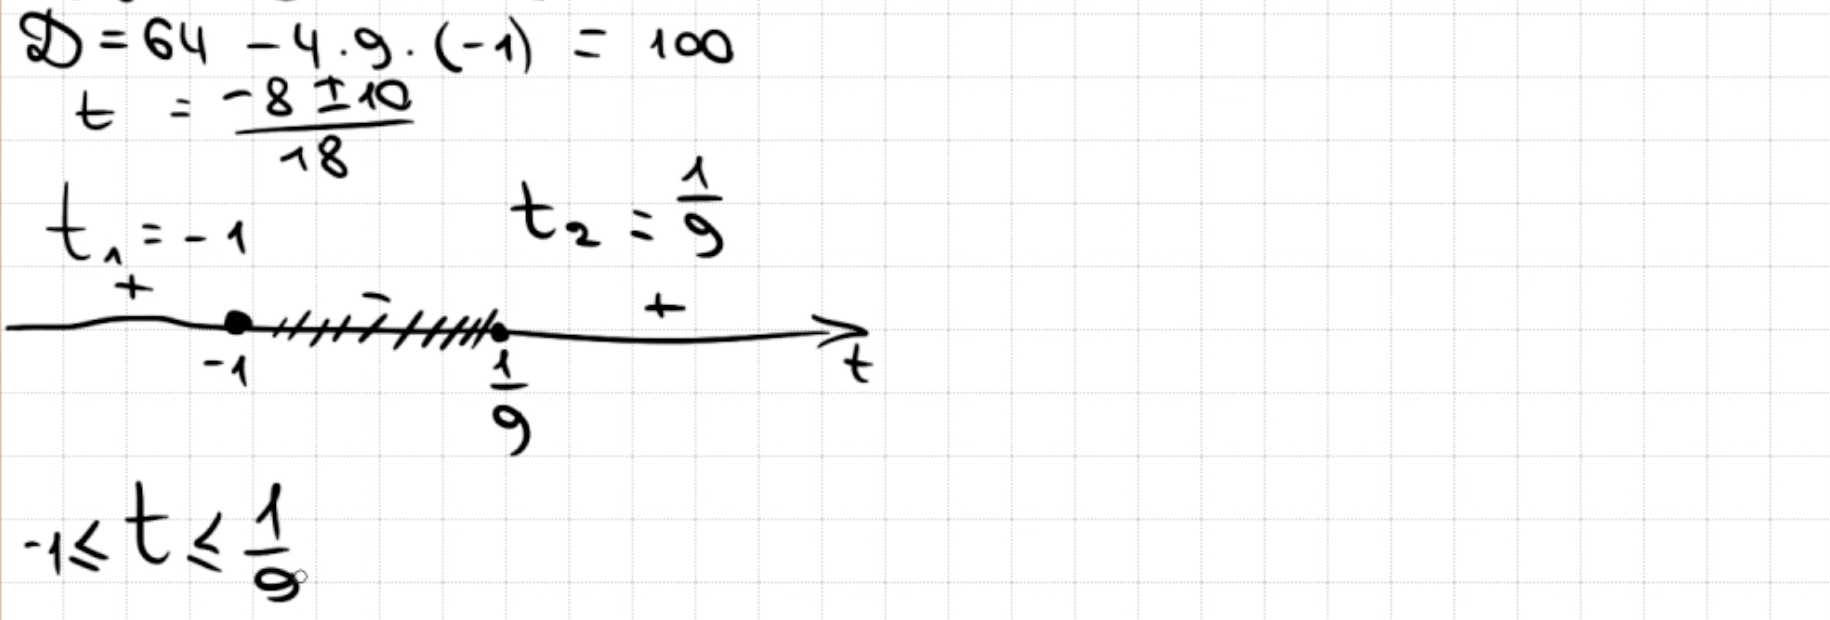 D = 64 - 4 · 9 · (-1) = 100
t = (-8 ± 10)/18
t₁ = -1 t₂ = 1/9
+ - +
-1 1/9 t
-1 ≤ t ≤ 1/9